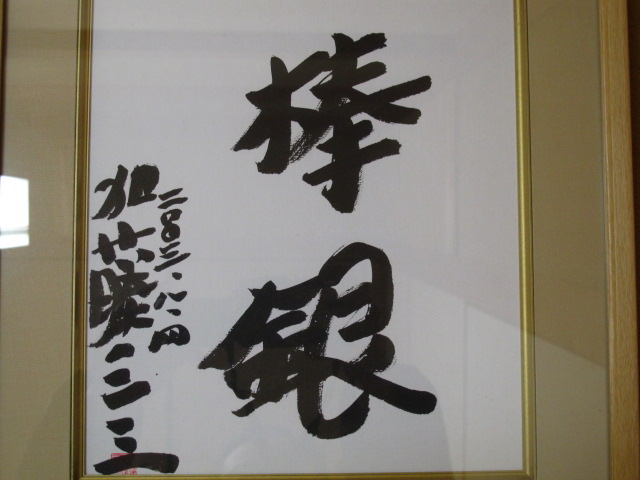 棒銀
二〇〇三・八・四
加藤一二三